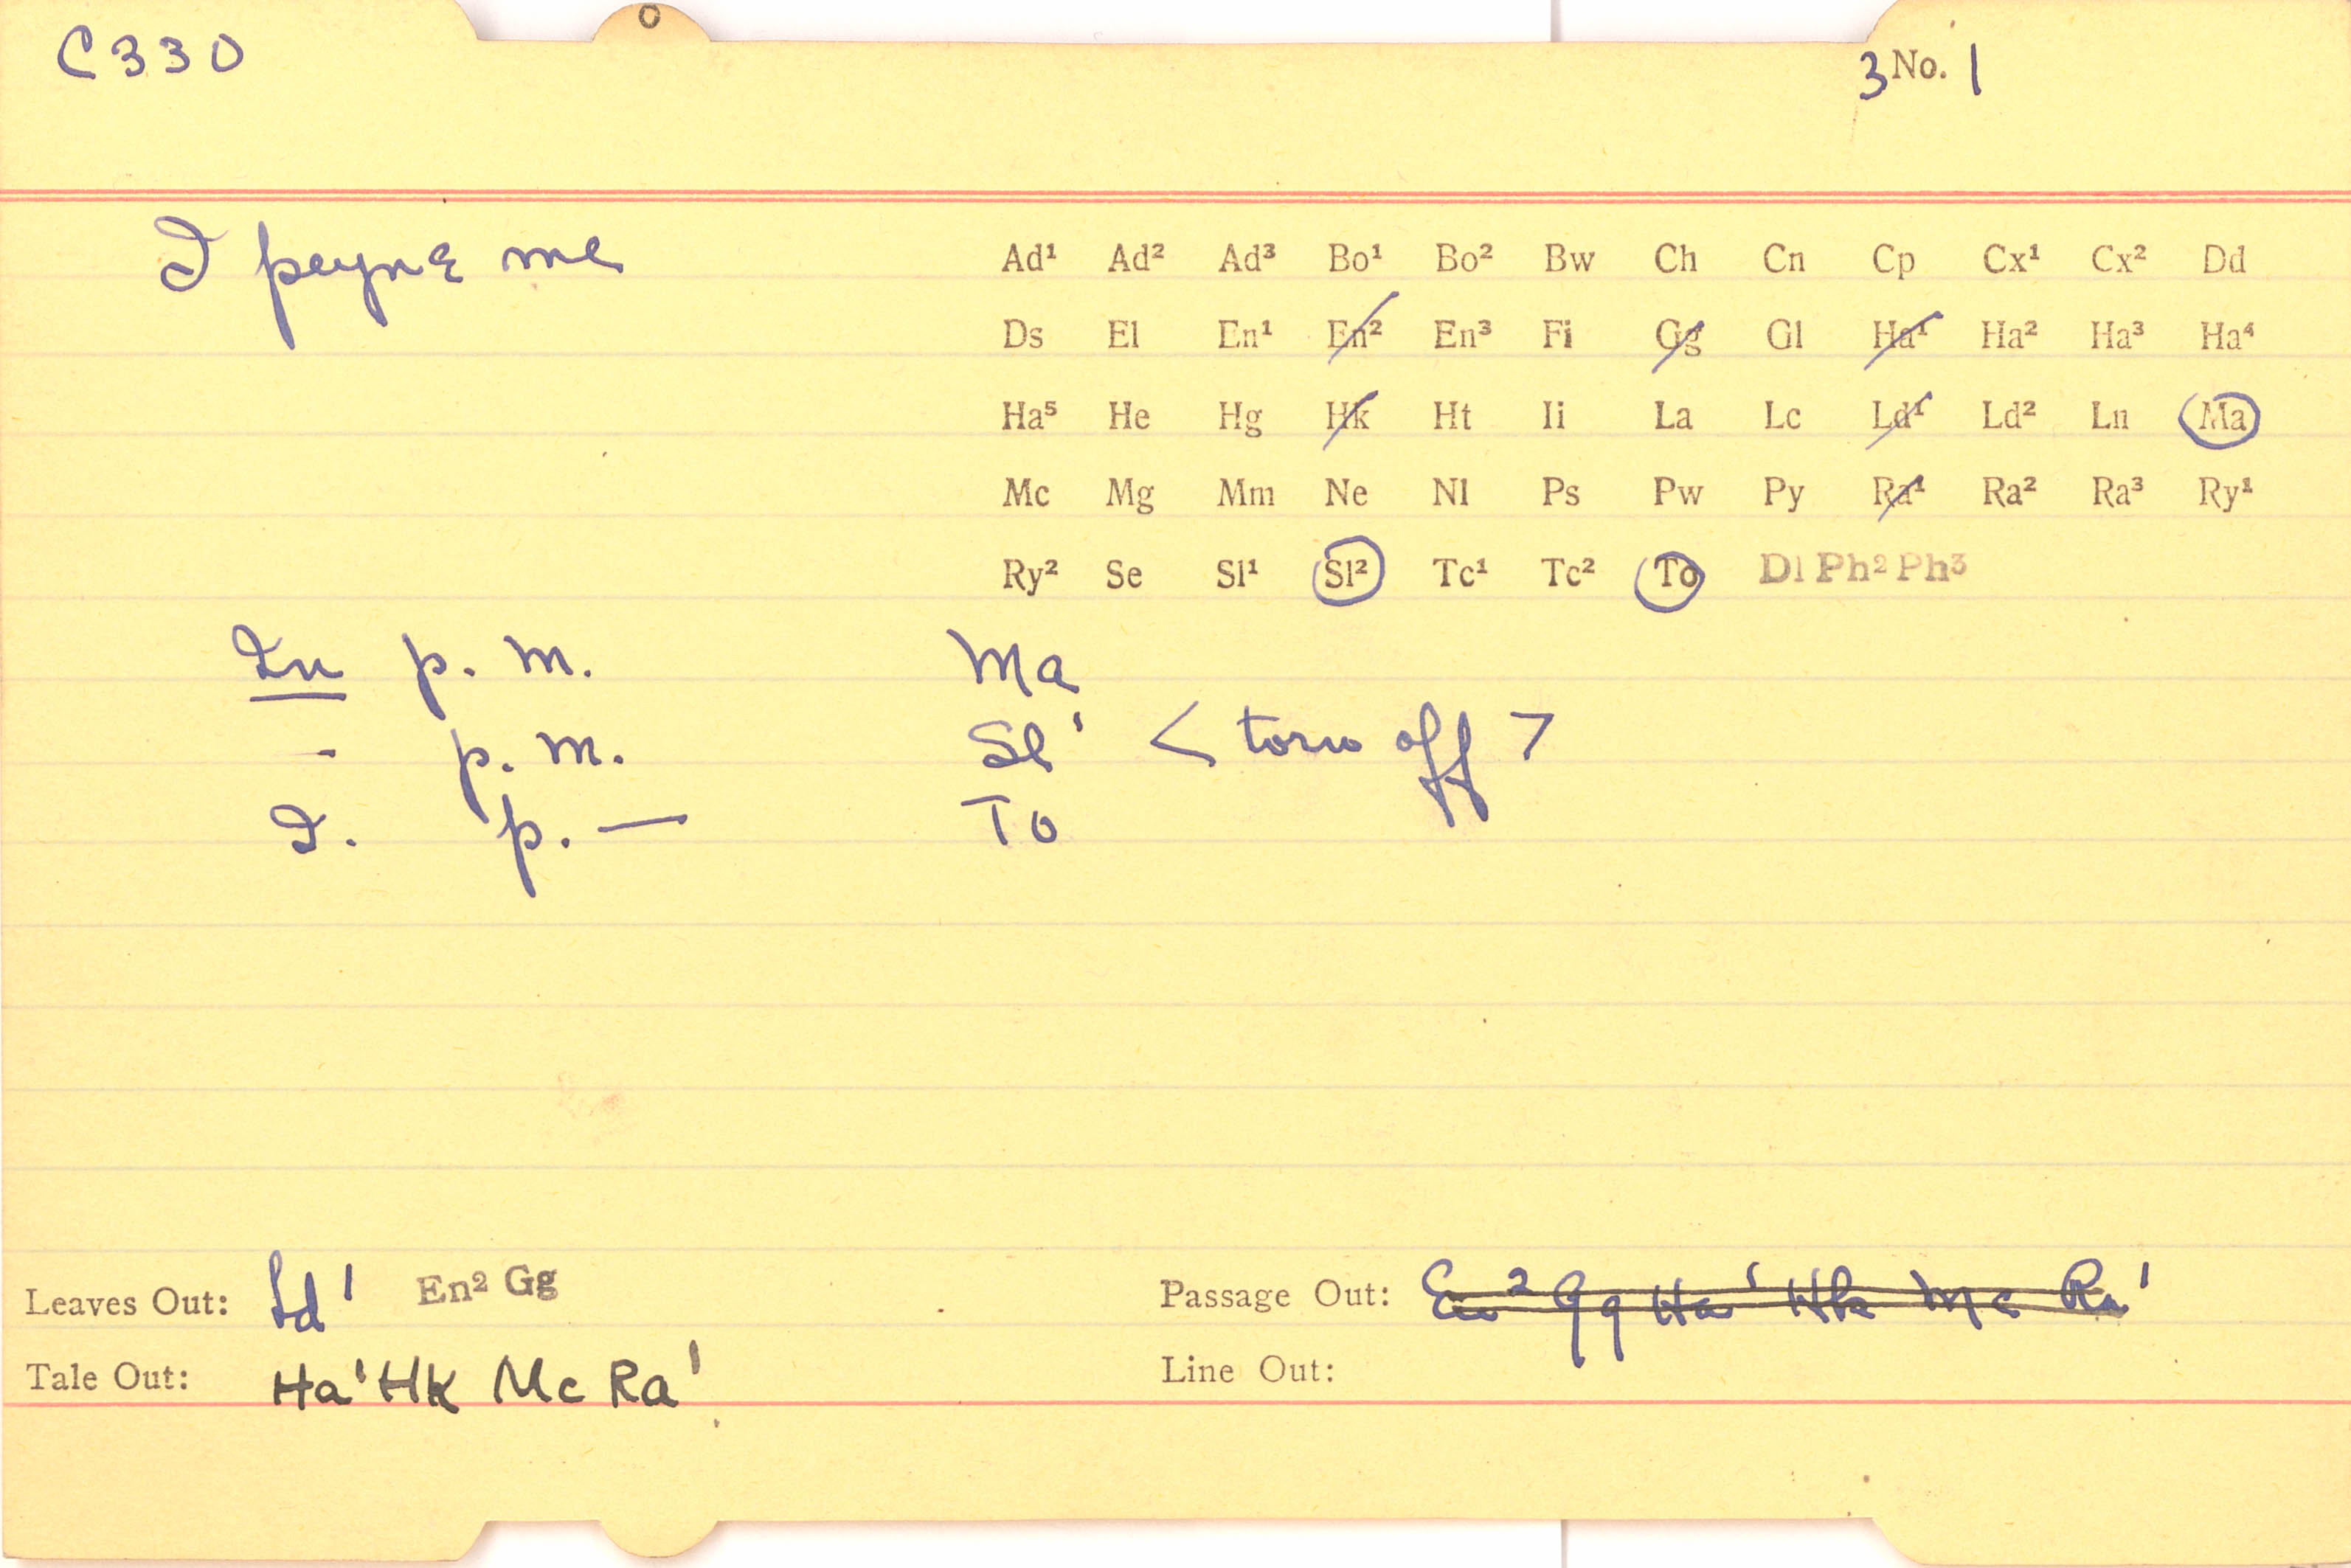 o
C330
3 No. 1
I peyne me
Ad¹ Ad² Ad³ Bo¹ Bo² Bw Ch Cn Cp Cx¹ Cx² Dd
Ds El En¹ En² En³ Fi Gg Gl Ha¹ Ha² Ha³ Ha⁴
Ha⁵ He Hg Hk Ht Ii La Lc Ld¹ Ld² Ln Ma
Mc Mg Mm Ne Nl Ps Pw Py Ra¹ Ra² Ra³ Ry¹
Ry² Se Sl¹ Sl² Tc¹ Tc² To Dl Ph² Ph³
In p. m. Ma
- p. m. Sl¹ < torn off >
I. p. — To
Leaves Out: Ld¹ En² Gg
Passage Out: En² Gg Ha¹ Hk Mc Ra¹
Tale Out: Ha¹ Hk Mc Ra¹
Line Out: